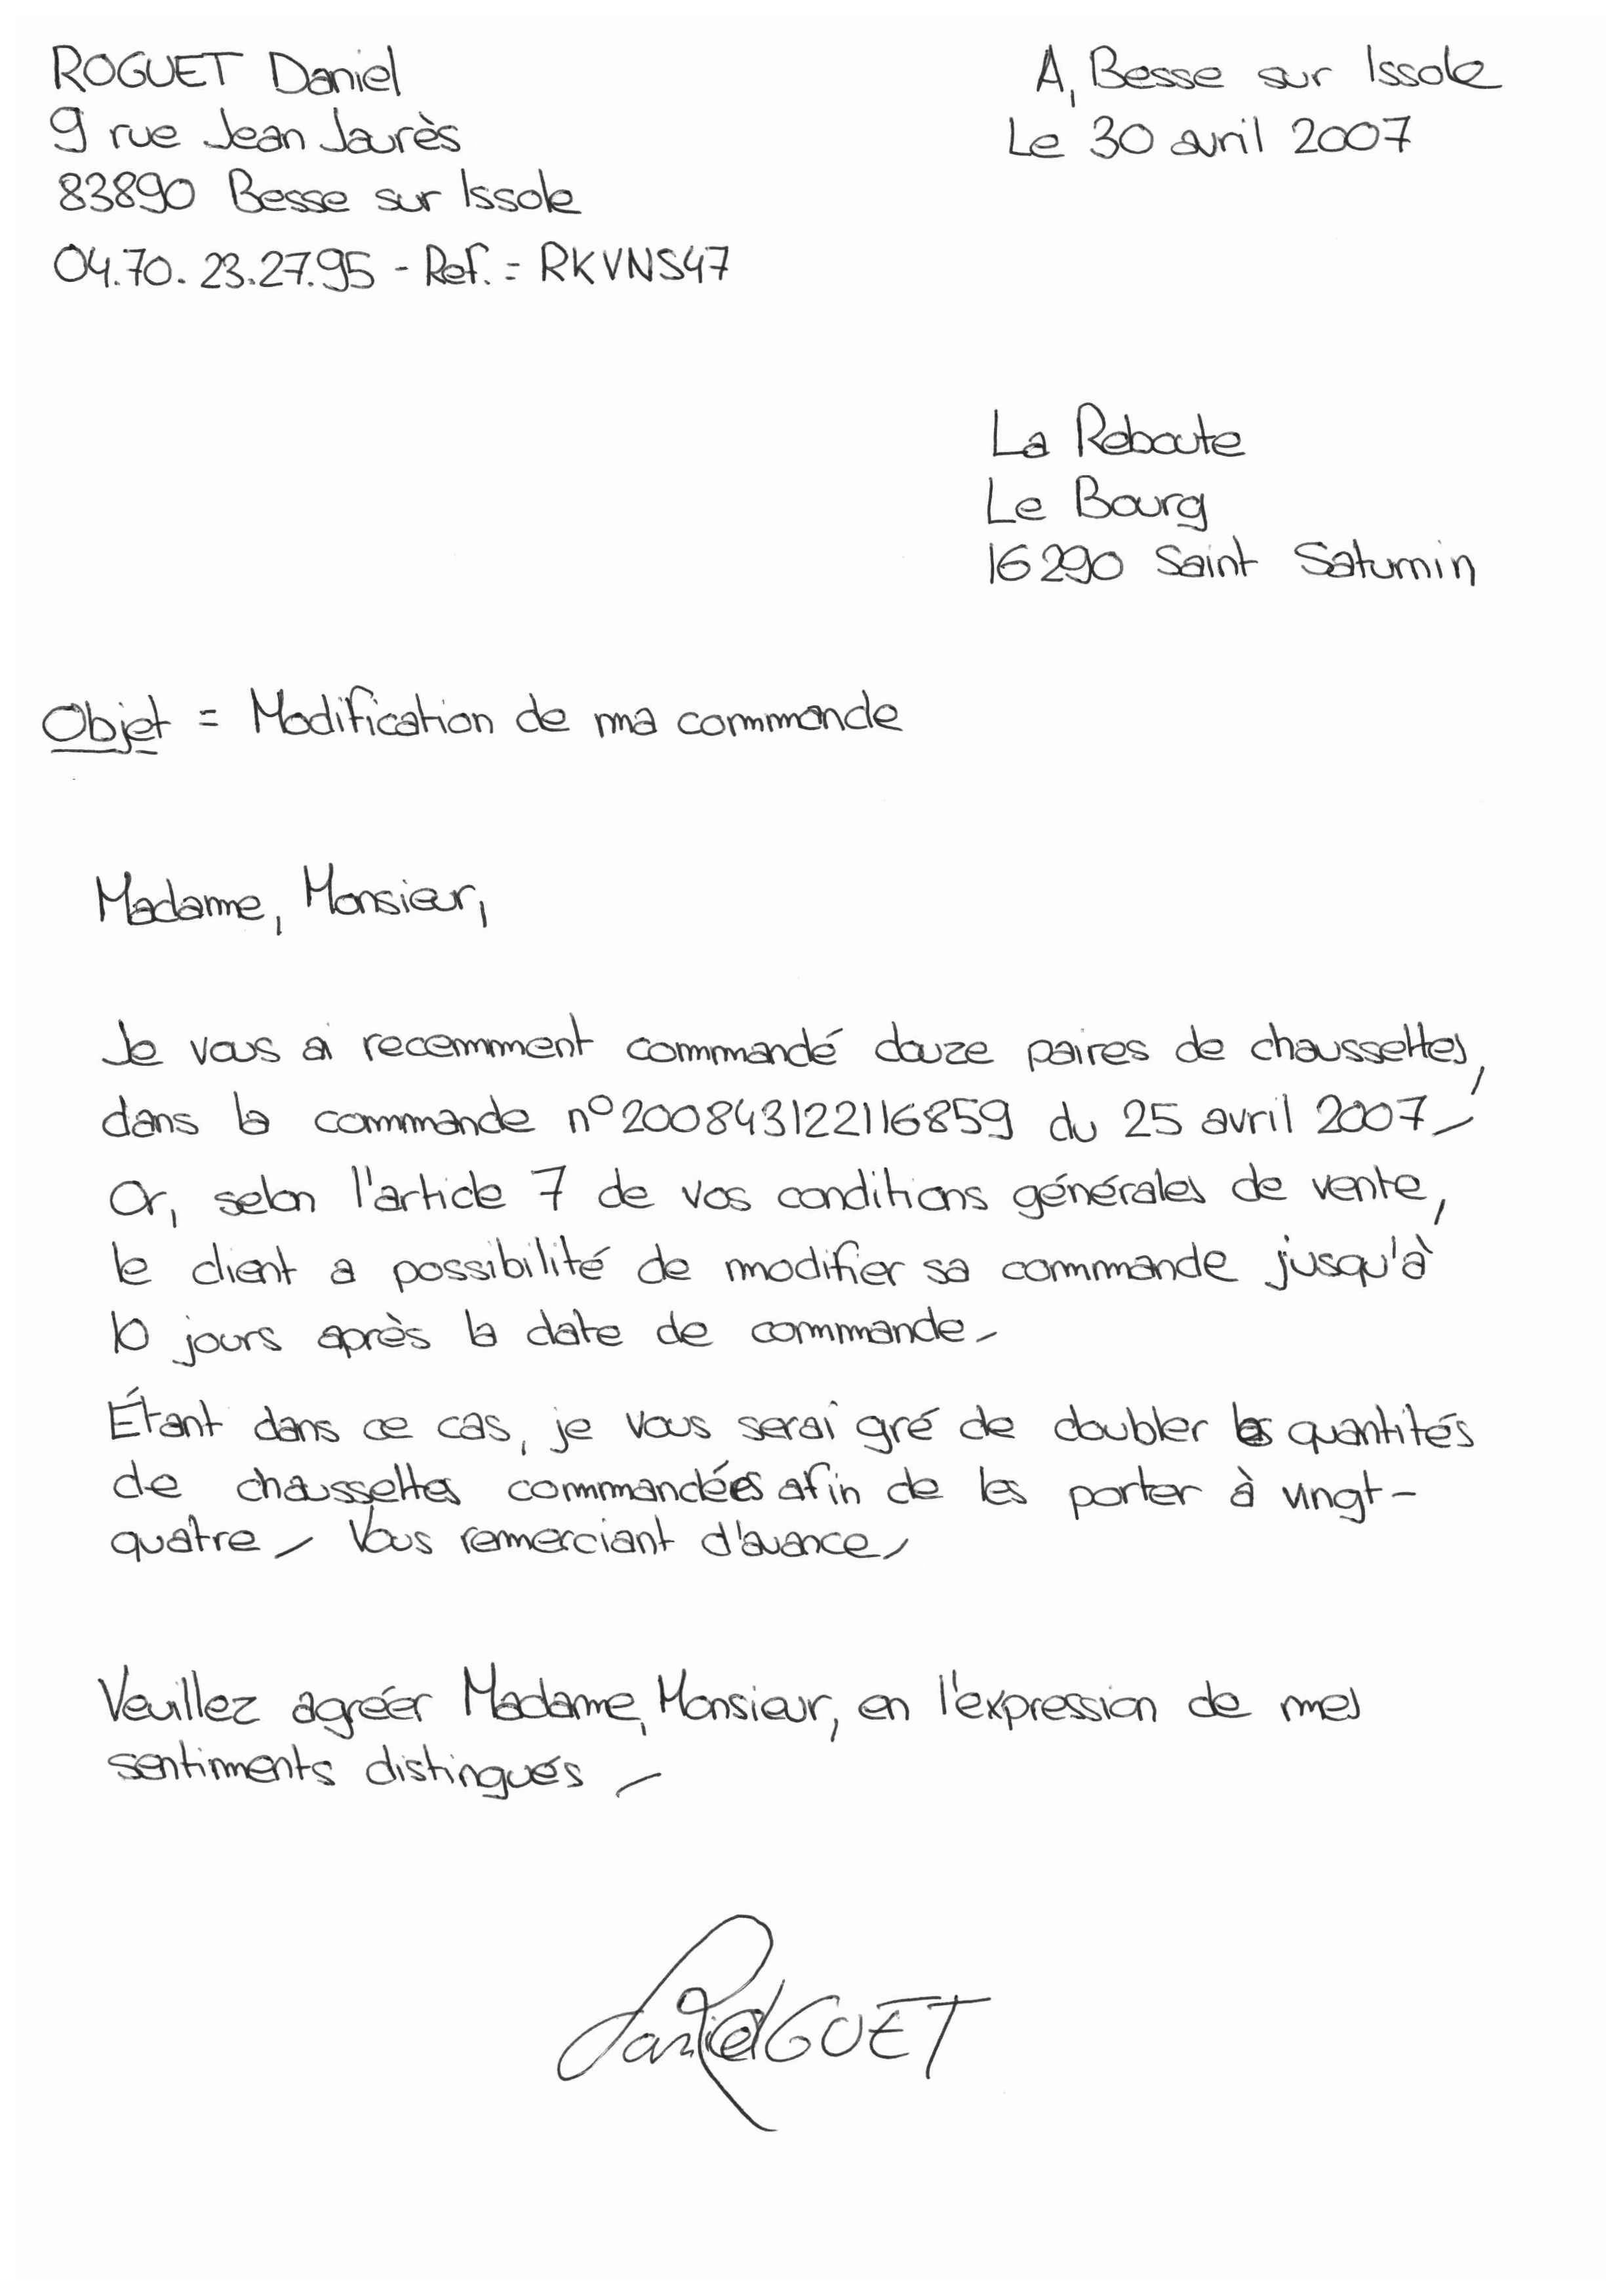 ROGUET Daniel
9 rue Jean Jaurès
83890 Besse sur Issole
04.70.23.27.95 - Ref. = RKVNS47
A, Besse sur Issole
Le 30 avril 2007
La Reboute
Le Bourg
16290 Saint Saturnin
Objet = Modification de ma commande
Madame, Monsieur,
Je vous ai recemment commandé douze paires de chaussettes,
dans la commande n°200843122116859 du 25 avril 2007-
Or, selon l'article 7 de vos conditions générales de vente,
le client a possibilité de modifier sa commande jusqu'à
10 jours après la date de commande-
Étant dans ce cas, je vous serai gré de doubler les quantités
de chaussettes commandées afin de les porter à vingt-
quatre- Vous remerciant d'avance,
Veuillez agréer Madame, Monsieur, en l'expression de mes
sentiments distingués-
Daniel ROGUET